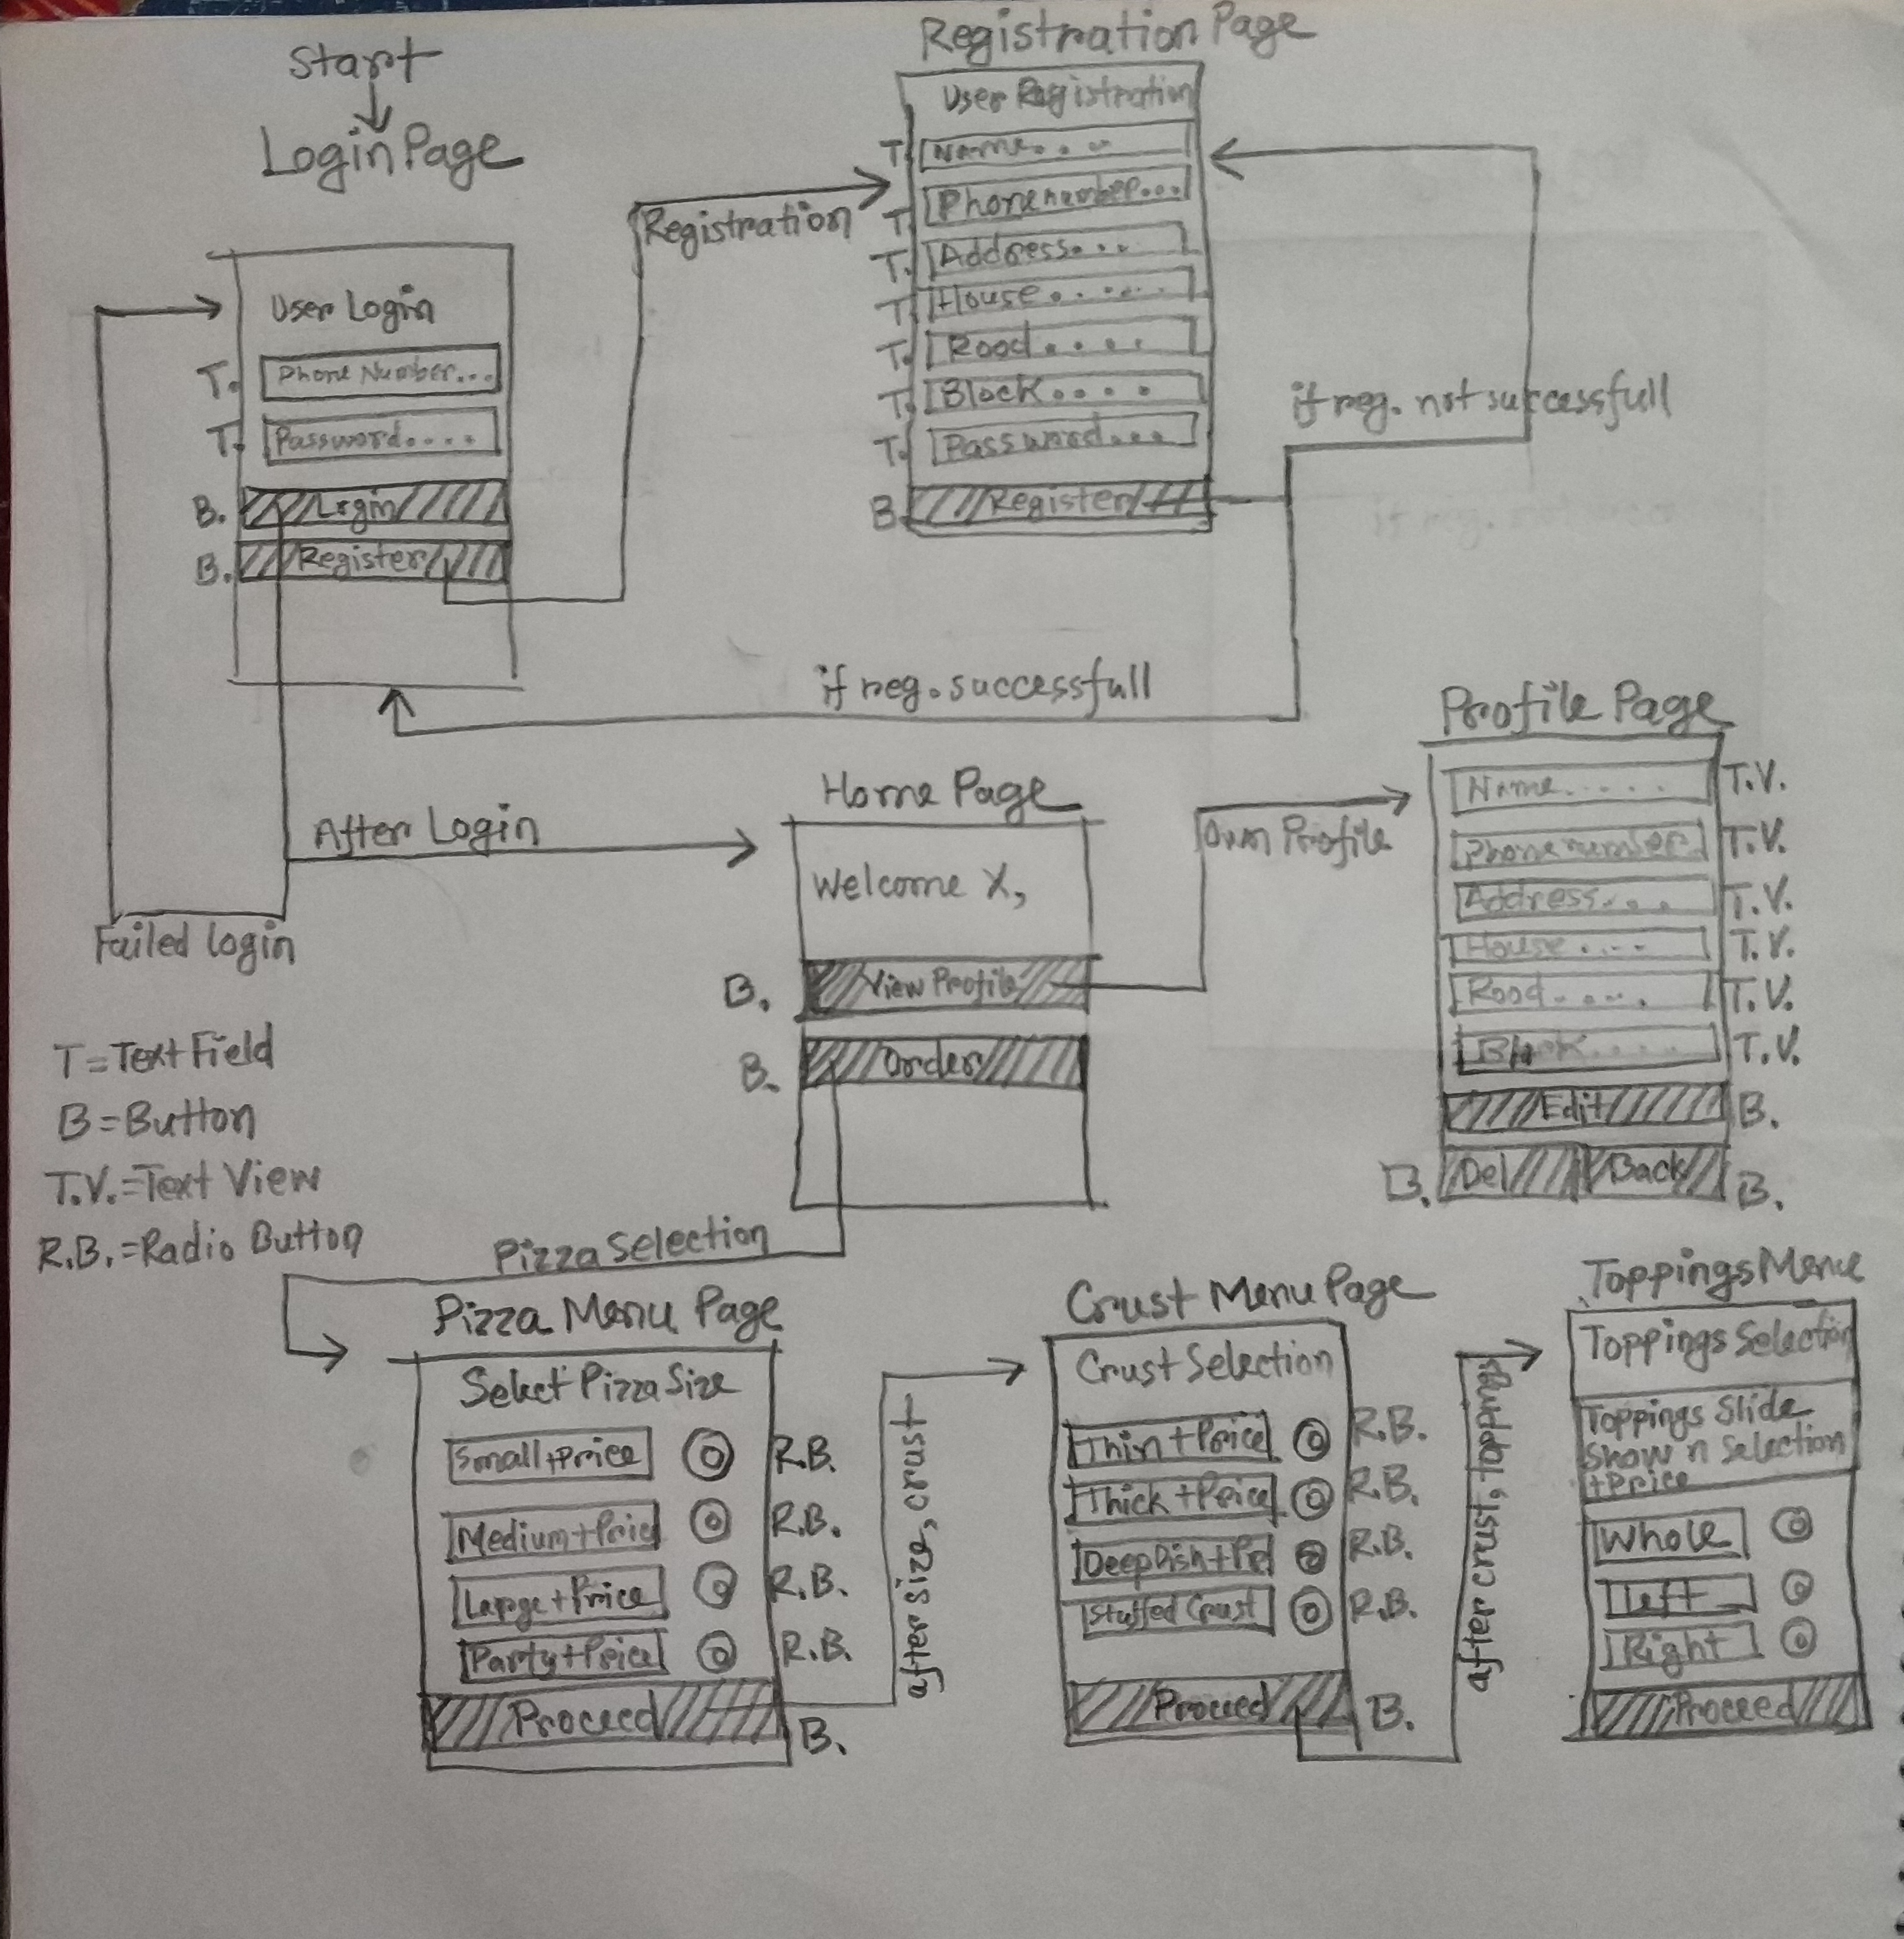 Start
Login Page
User Login
T. Phone Number...
T. Password....
B. Login
B. Register
Registration
Registration Page
User Registration
T. Name....
T. Phone number...
T. Address....
T. House......
T. Rood....
T. Block....
T. Password...
B. Register
if reg. not successfull
if reg. successfull
After Login
Failed login
Home Page
Welcome X,
B. View Profile
B. Order
Own Profile
Profile Page
Name..... T.V.
Phone number T.V.
Address.... T.V.
House.... T.V.
Rood..... T.V.
Block.... T.V.
Edit B.
B. Del Back B.
T = Text Field
B = Button
T.V. = Text View
R.B. = Radio Button
Pizza Selection
Pizza Menu Page
Select Pizza Size
Small + Price R.B.
Medium + Price R.B.
Large + Price R.B.
Party + Price R.B.
Proceed B.
after size, crust
Crust Menu Page
Crust Selection
Thin + Price R.B.
Thick + Price R.B.
Deep Dish + Pri R.B.
Stuffed Crust R.B.
Proceed B.
after crust, toppings
Toppings Menu
Toppings Selection
Toppings Slide
Show n Selection
+ Price
Whole
Left
Right
Proceed